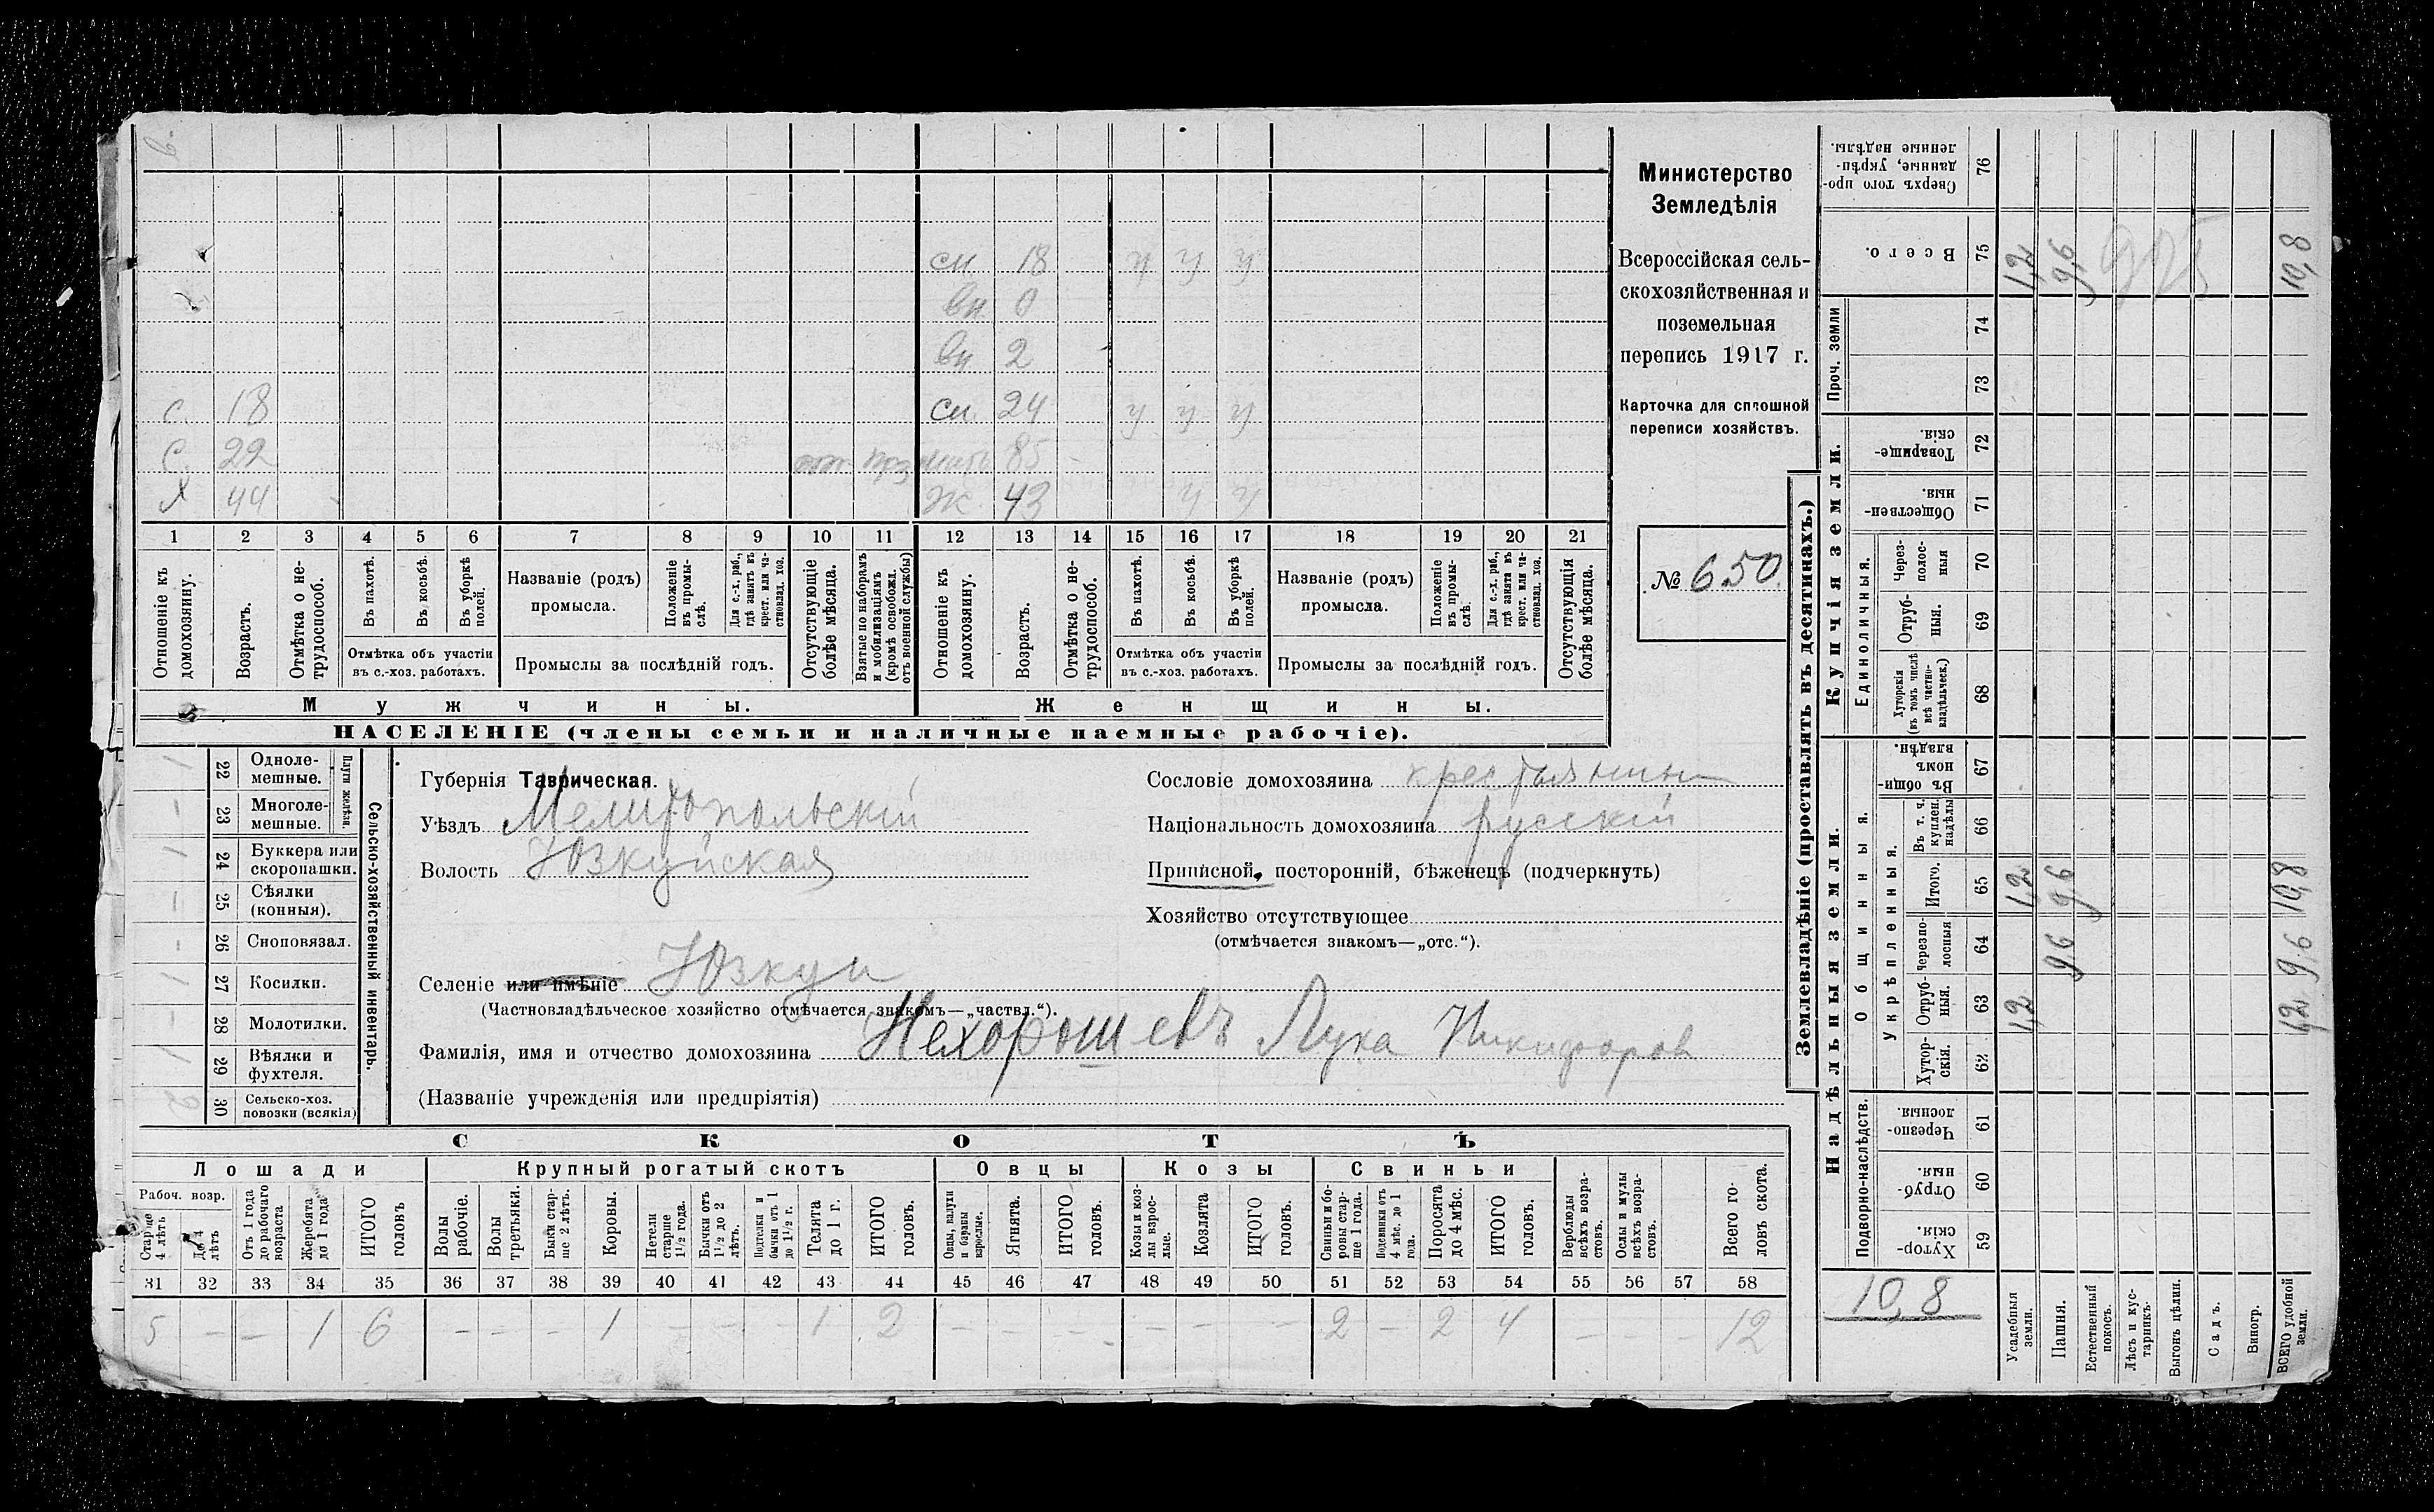 см 18 у у у
вн. 0
вн. 2
с. 18 см. 24 у у у
с. 22 мать 85
х 44 ж 43 у у
1 2 3 4 5 6 7 8 9 10 11 12 13 14 15 16 17 18 19 20 21
Отношеніе къ домохозяину.
Возрастъ.
Отмѣтка о не-трудоспособ.
Въ пахотѣ.
Въ косьбѣ.
Въ уборкѣ полей.
Отмѣтка объ участіи въ с.-хоз. работахъ.
Названіе (родъ) промысла.
Положеніе въ промы-слѣ.
Для с.-х. раб., гдѣ занятъ въ крест. или ча-стновлад. хоз.
Промыслы за послѣдній годъ.
Отсутствующіе болѣе мѣсяца.
Взятые по наборамъ и мобилизаціямъ (кромѣ освобожд. отъ военной службы)
Отношеніе къ домохозяину.
Возрастъ.
Отмѣтка о не-трудоспособ.
Въ пахотѣ.
Въ косьбѣ.
Въ уборкѣ полей.
Отмѣтка объ участіи въ с.-хоз. работахъ.
Названіе (родъ) промысла.
Положеніе въ промы-слѣ.
Для с.-х. раб., гдѣ занята въ крест. или ча-стновлад. хоз.
Промыслы за послѣдній годъ.
Отсутствующія болѣе мѣсяца.
Мужчины. Женщины.
НАСЕЛЕНІЕ (члены семьи и наличные наемные рабочіе).
Министерство
Земледѣлія
Всероссійская сель-
скохозяйственная и
поземельная
перепись 1917 г.
Карточка для сплошной
переписи хозяйствъ.
№ 650.
Сельско-хозяйственный инвентарь.
Плуги желѣзн.
22 Одноле-мешные. 1
23 Многоле-мешные. –
24 Буккера или скоропашки. 1
25 Сѣялки (конныя). –
26 Сноповязал. –
27 Косилки. 1
28 Молотилки. –
29 Вѣялки и фухтеля. 1
30 Сельско-хоз. повозки (всякія) 2
Губернія Таврическая.
Уѣздъ Мелитопольскій
Волость Юзкуйская
Селеніе или имѣніе Юзкуи
(Частновладѣльческое хозяйство отмѣчается знакомъ—„частвл.“).
Фамилія, имя и отчество домохозяина Нехорошевъ Лука Никифоров
(Названіе учрежденія или предпріятія)
Сословіе домохозяина крестьянинъ
Національность домохозяина русскій
Приписной, посторонній, бѣженецъ (подчеркнуть)
Хозяйство отсутствующее
(отмѣчается знакомъ—„отс.“).
СКОТЪ
Лошади Крупный рогатый скотъ Овцы Козы Свиньи
Рабоч. возр.
Старше 4 лѣтъ
До 4 лѣтъ
Отъ 1 года до рабочаго возраста
Жеребята до 1 года
ИТОГО головъ
Волы рабочіе.
Волы третьяки.
Быки стар-ше 2 лѣтъ.
Коровы.
Нетели старше 1½ года.
Бычки отъ 1½ до 2 лѣтъ.
Подтелки и бычки отъ 1 до 1½ г.
Телята до 1 г.
ИТОГО головъ.
Овцы, валухи и бараны взрослые.
Ягнята.
ИТОГО головъ.
Козы и коз-лы взрос-лые.
Козлята
ИТОГО головъ.
Свиньи и бо-ровы стар-ше 1 года.
Подсвинки отъ 4 мѣс. до 1 года.
Поросята до 4 мѣс.
ИТОГО головъ.
Верблюды всѣхъ возра-стовъ.
Ослы и мулы всѣхъ возра-стовъ.
Всего го-ловъ скота.
31 32 33 34 35 36 37 38 39 40 41 42 43 44 45 46 47 48 49 50 51 52 53 54 55 56 57 58
5 – – 1 6 – – – 1 – – – 1 2 – – – – – – 2 – 2 4 – – – 12
Землевладѣніе (проставлять въ десятинахъ.)
Надѣльныя земли. Купчія земли. Проч. земли
Подворно-наслѣдств. Общинныя. Укрѣпленныя. Единоличныя.
Хутор-скія. 59
Отруб-ныя. 60
Черезпо-лосныя. 61
Хутор-скія. 62
Отруб-ныя. 63 1,2 1,2
Черезпо-лосныя 64 9,6 9,6
Итого. 65 1,2 9,6 10,8
Въ т. ч. куплен. надѣлы 66
Въ общи номъ владѣн. 67
Хуторскія (въ томъ числѣ всѣ частно-владѣльческ.) 68
Отруб-ныя. 69
Через-полос-ныя 70
Обществен-ныя. 71
Товарище-скія. 72
73
74
Всего. 75 1,2 9,6 10,8
Сверхъ того про-данные, укрѣп-ленные надѣлы. 76
10,8
Усадебныя земли.
Пашня.
Естественный покосъ.
Лѣсъ и кус-тарникъ.
Выгонъ цѣлин.
Садъ.
Виногр.
ВСЕГО удобной земли.